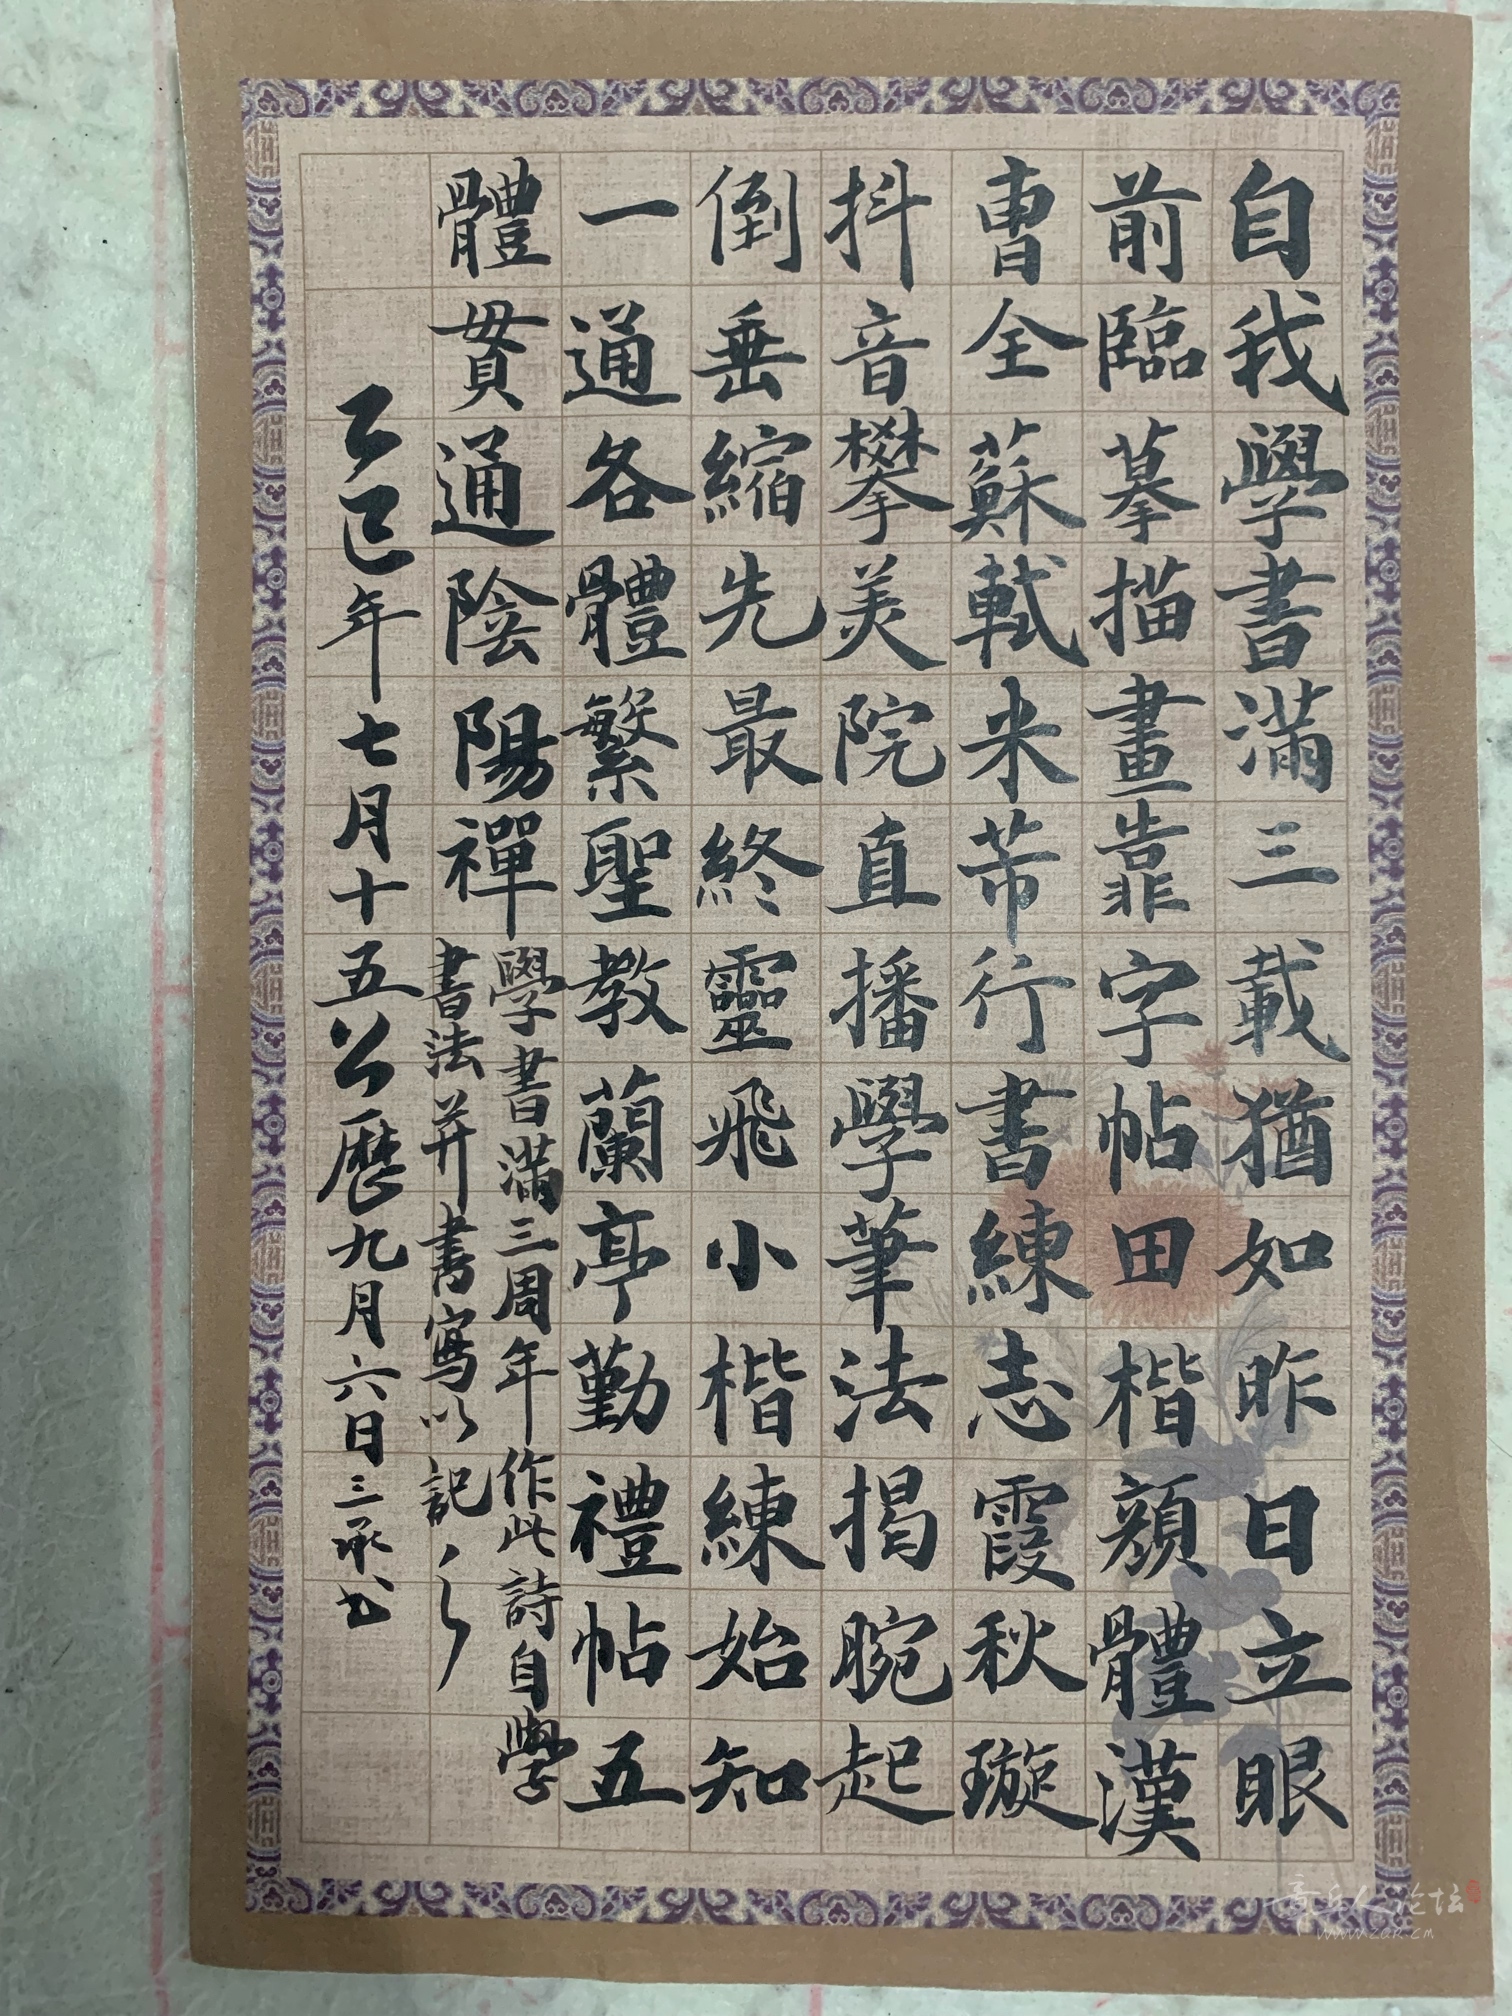 自我學書滿三載猶如昨日立眼
前臨摹描畫靠字帖田楷顔體漢
曹全蘇軾米芾行書練志霞秋璇
抖音攀美院直播學筆法揭腕起
倒垂縮先最終靈飛小楷練始知
一通各體繁聖教蘭亭勤禮帖五
體貫通陰陽禪
學書滿三周年作此詩自學
書法并書寫以記之
乙巳年七月十五公歷九月六日三承书
章丘人论坛
www.zqr.cm